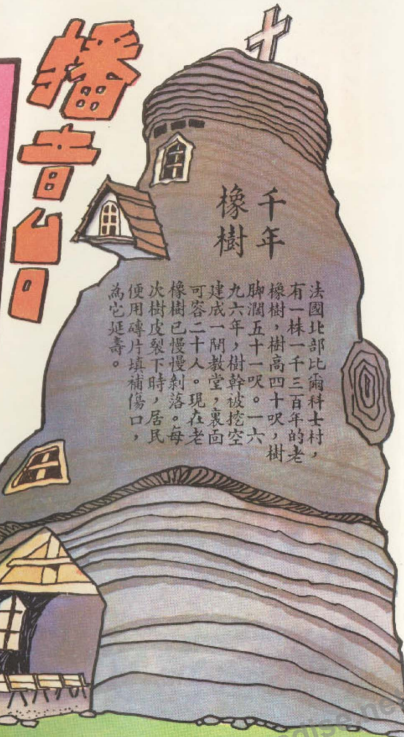 播音台
千年
橡樹
法國北部比爾科士村，
有一株一千三百年的老
橡樹，樹高四十呎，樹
脚濶五十一呎。一六
九六年，樹幹被挖空
建成一間教堂，裏面
可容二十人。現在老
橡樹已慢慢剝落。每
次樹皮裂下時，居民
便用磚片填補傷口，
為它延壽。